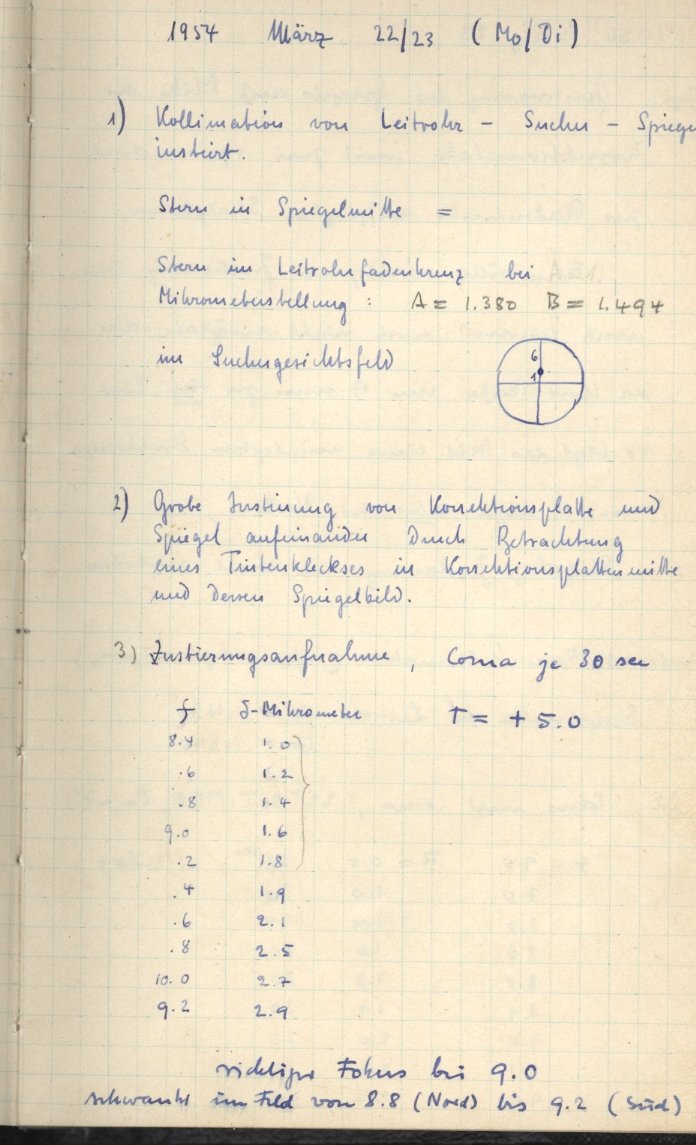 1954 März 22/23 (Mo/Di)
1) Kollimation von Leitrohr – Sucher – Spiegel
justiert.
Stern in Spiegelmitte =
Stern im Leitrohrfadenkreuz bei
Mikrometerstellung : A = 1.380 B = 1.494
im Suchergesichtsfeld
6
1
2) Grobe Justierung von Korrektionsplatte und
Spiegel aufeinander durch Betrachtung
eines Tintenkleckses in Korrektionsplattenmitte
und dessen Spiegelbild.
3) Justierungsaufnahme, Coma je 30 sec
f f-Mikrometer T = + 5.0
8.4 1.0
.6 1.2
.8 1.4
9.0 1.6
.2 1.8
.4 1.9
.6 2.1
.8 2.5
10.0 2.7
9.2 2.9
richtiger Fokus bei 9.0
schwankt im Feld von 8.8 (Nord) bis 9.2 (Süd)